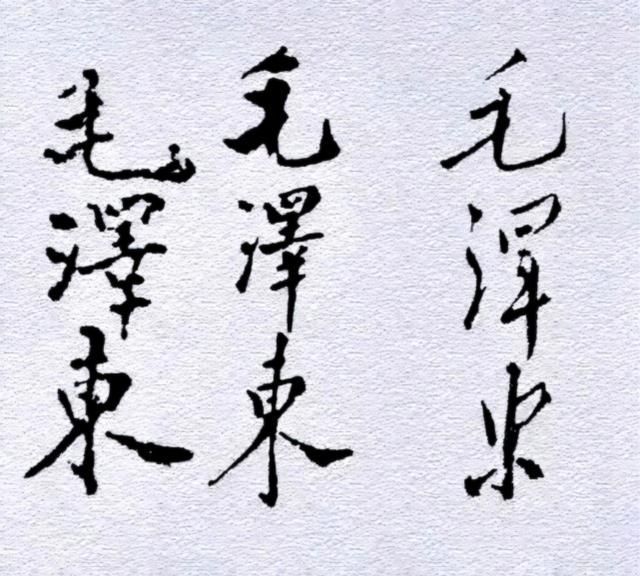 毛澤東
毛澤東
毛澤东